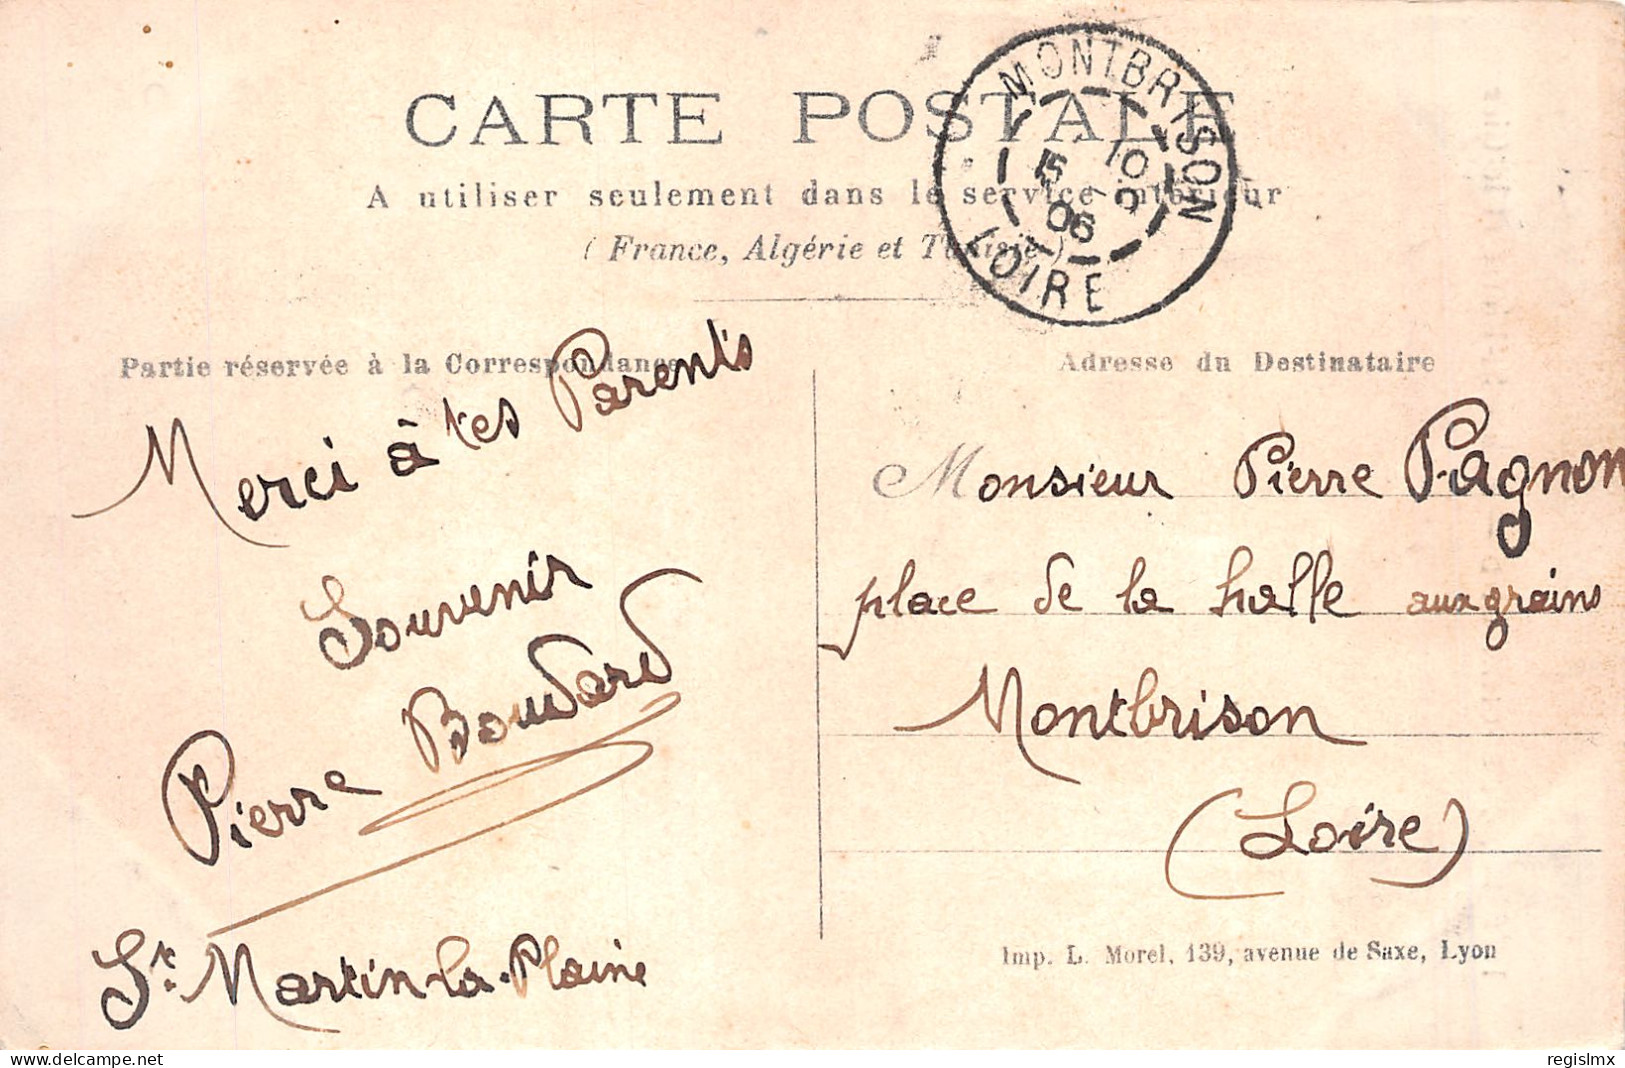 CARTE POSTALE
A utiliser seulement dans le service intérieur
(France, Algérie et Tunisie)
MONTBRISON
15 10
06
LOIRE
Partie réservée à la Correspondance
Merci à tes Parents
Souvenir
Pierre Boudard
St. Martin-la-Plaine
Adresse du Destinataire
Monsieur Pierre Pagnon
place de la halle aux grains
Montbrison
(Loire)
Imp. L. Morel, 139, avenue de Saxe, Lyon
www.delcampe.net
regislmx